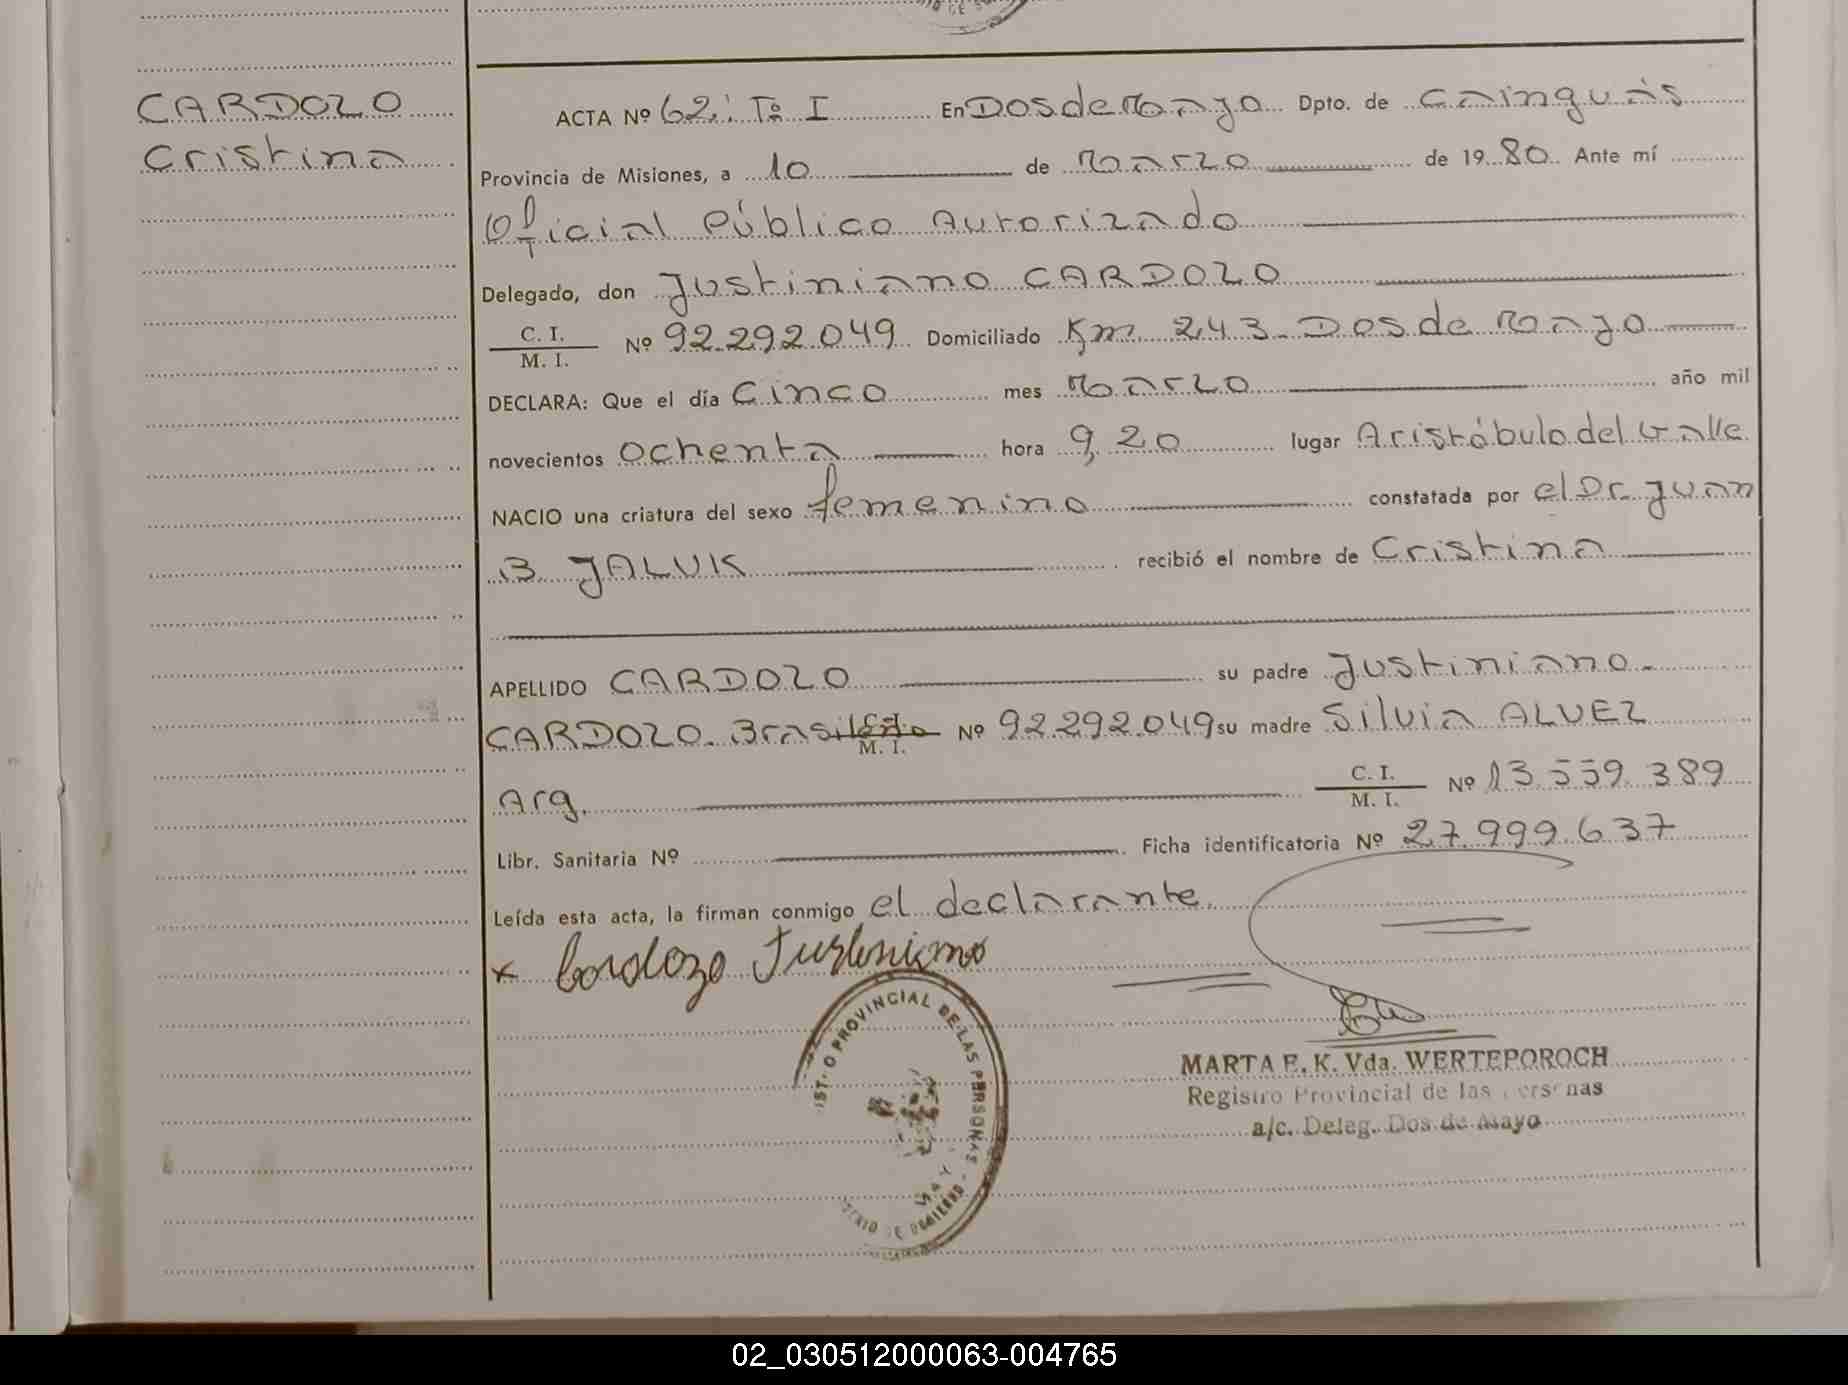 CARDOZO
Cristina
ACTA Nº 62; Tº I En Dos de Mayo Dpto. de Cainguás
Provincia de Misiones, a 10 de Marzo de 1980 Ante mí
Oficial Público Autorizado
Delegado, don Justiniano CARDOZO
C. I.
M. I. Nº 92.292.049 Domiciliado Km 243 Dos de Mayo
DECLARA: Que el día Cinco mes Marzo año mil
novecientos ochenta hora 9,20 lugar Aristóbulo del Valle
NACIO una criatura del sexo femenino constatada por el Dr. Juan
B JALUK recibió el nombre de Cristina
APELLIDO CARDOZO su padre Justiniano
CARDOZO. Brasileño C. I. M. I. Nº 92.292.049 su madre Silvia ALVEZ
Arg. C. I. M. I. Nº 13.559.389
Libr. Sanitaria Nº Ficha identificatoria Nº 27.999.637
Leída esta acta, la firman conmigo el declarante.
x Cardozo Justiniano
PROVINCIAL DE LAS PERSONAS
MARTA E. K. Vda. WERTEPOROCH
Registro Provincial de las
a/c. Deleg. Dos de Mayo
02_030512000063-004765